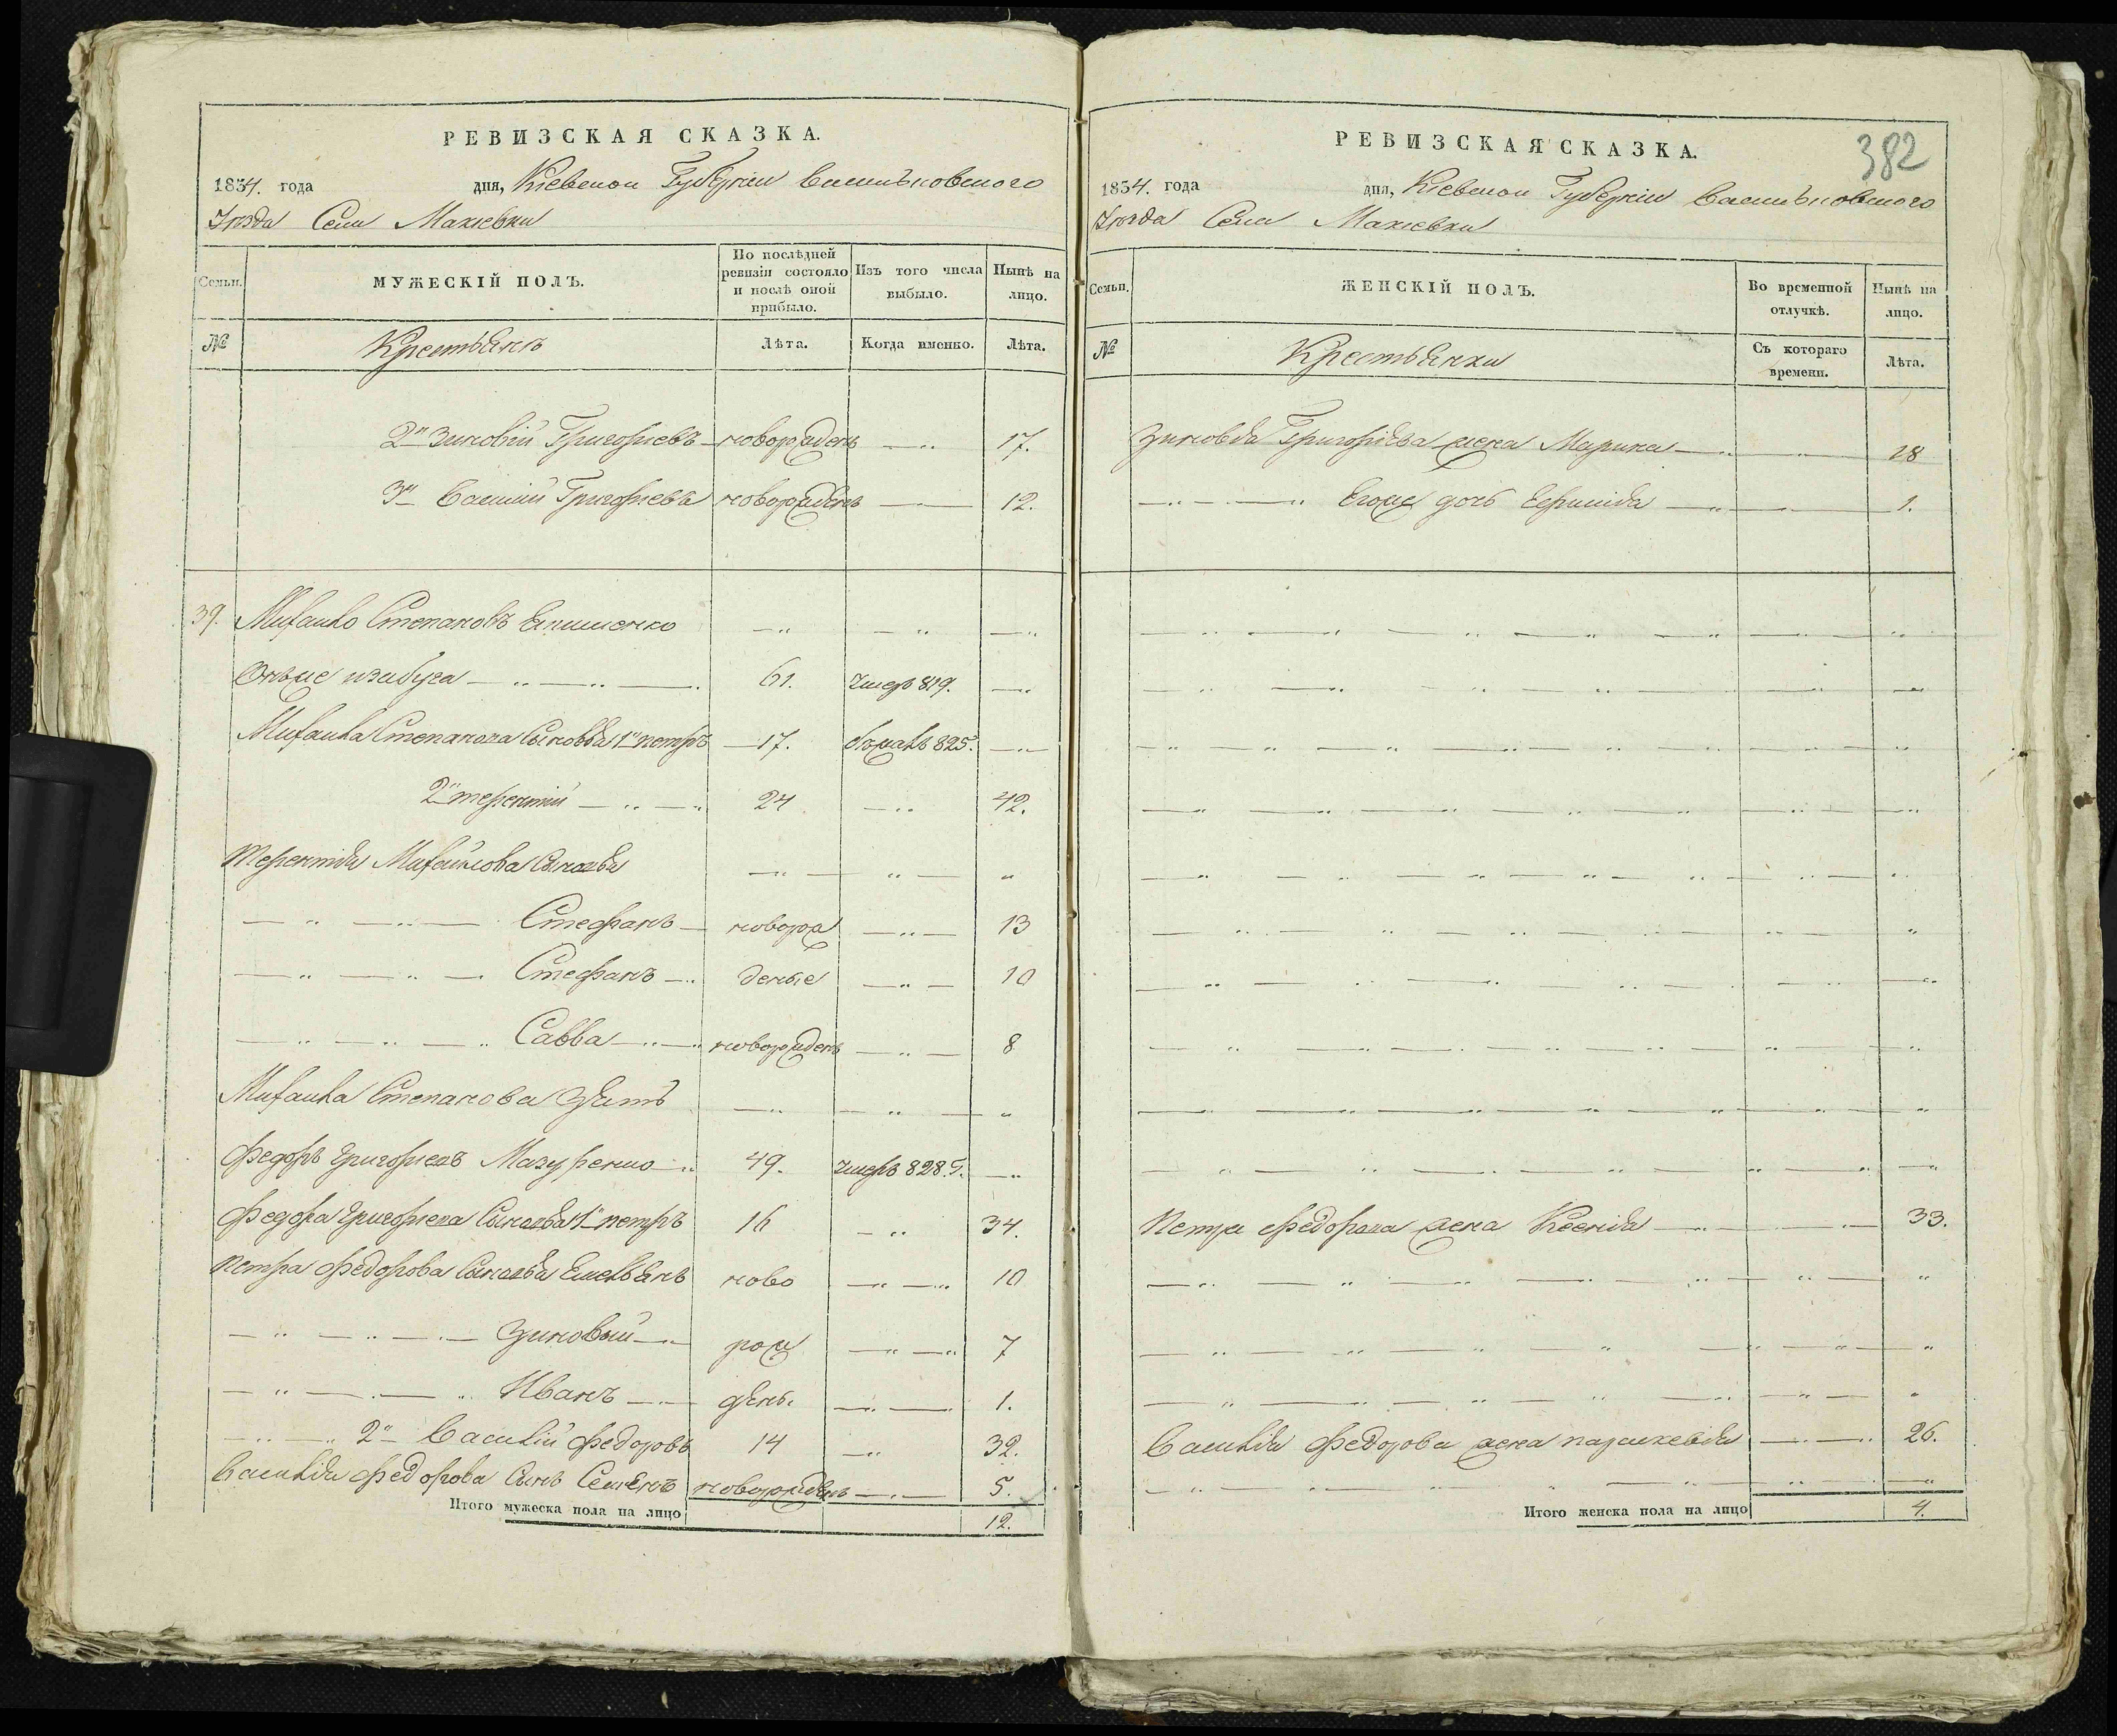 РЕВИЗСКАЯ СКАЗКА.
1834. года дня, Кіевской Губерніи Васильковского
Уѣзда Села Макіевки
Семьи. МУЖЕСКІЙ ПОЛЪ. По послѣдней ревизіи состояло и послѣ оной прибыло. Изъ того числа выбыло. Нынѣ на лицо.
№ Крестьянъ Лѣта. Когда именно. Лѣта.
2й Зиновій Григорьевъ новорожденъ 17.
3й Василій Григорьевъ новорожденъ 12.
39. Михайло Степановъ
61. умеръ 819.
Михайла Степанова Сыновья 1й петръ 17. бѣжалъ 825.
2й терентій 24 42.
терентія Михайлова Сыновья
Стефанъ новорож 13
Стефанъ деные 10
Савва новорожденъ 8
Михайла Степанова зять
Федоръ Григорьевъ Мазуренко 49. умеръ 828. г.
Федора Григорьева Сыновья 1й петръ 16 34.
петра Федорова Сыновья Емельянъ ново 10
Зиновый рож 7
Иванъ дены. 1.
2й Василій Федоровъ 14 32.
Василія Федорова Сынъ Семенъ новорожденъ 5.
Итого мужеска пола на лицо 12.
РЕВИЗСКАЯ СКАЗКА. 382
1834. года дня, Кіевской Губерніи Васильковского
Уѣзда Села Макіевки
Семьи. ЖЕНСКІЙ ПОЛЪ. Во временной отлучкѣ. Нынѣ на лицо.
№ Крестьянки Съ котораго времени. Лѣта.
Зиновья Григорьева жена Марина 18
Егоже дочь 1.
петра Федорова жена Ксенія 33.
Василія Федорова жена параскевія 26.
Итого женска пола на лицо 4.